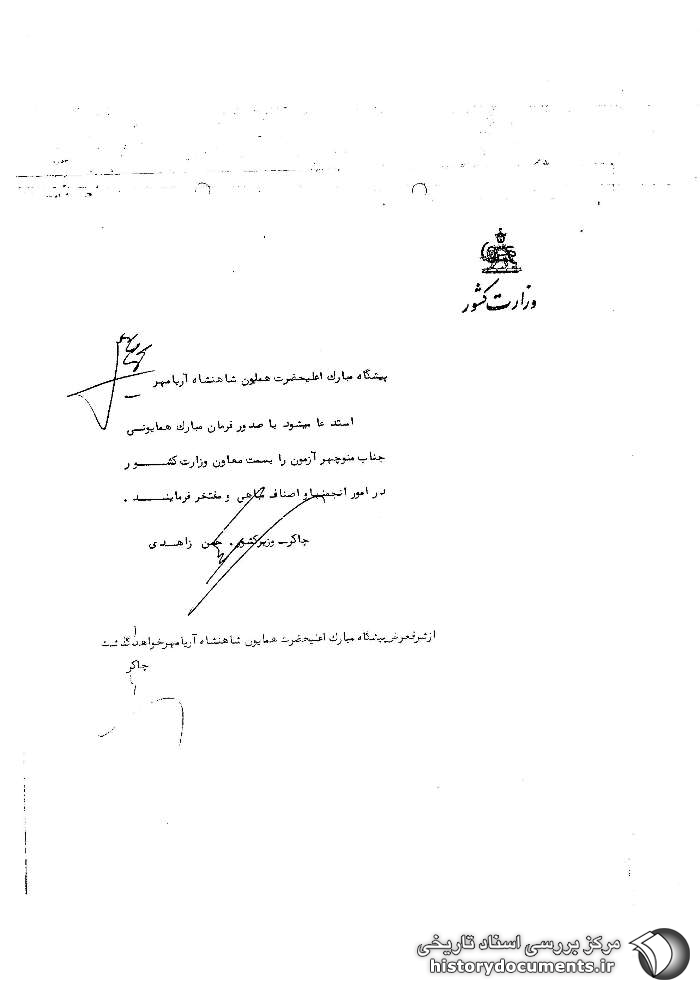 وزارت کشور
پیشگاه مبارک اعلیحضرت همایون شاهنشاه آریامهر
استدعا میشود با صدور فرمان مبارک همایونی
جناب منوچهر آزمون را بسمت معاون وزارت کشور
در امور انجمنها و اصناف مباهی و مفتخر فرمایند .
چاکر ـ وزیر کشور . حسن زاهدی
از شرفعرض پیشگاه مبارک اعلیحضرت همایون شاهنشاه آریامهر خواهد گذشت
چاکر
مرکز بررسی اسناد تاریخی
historydocuments.ir